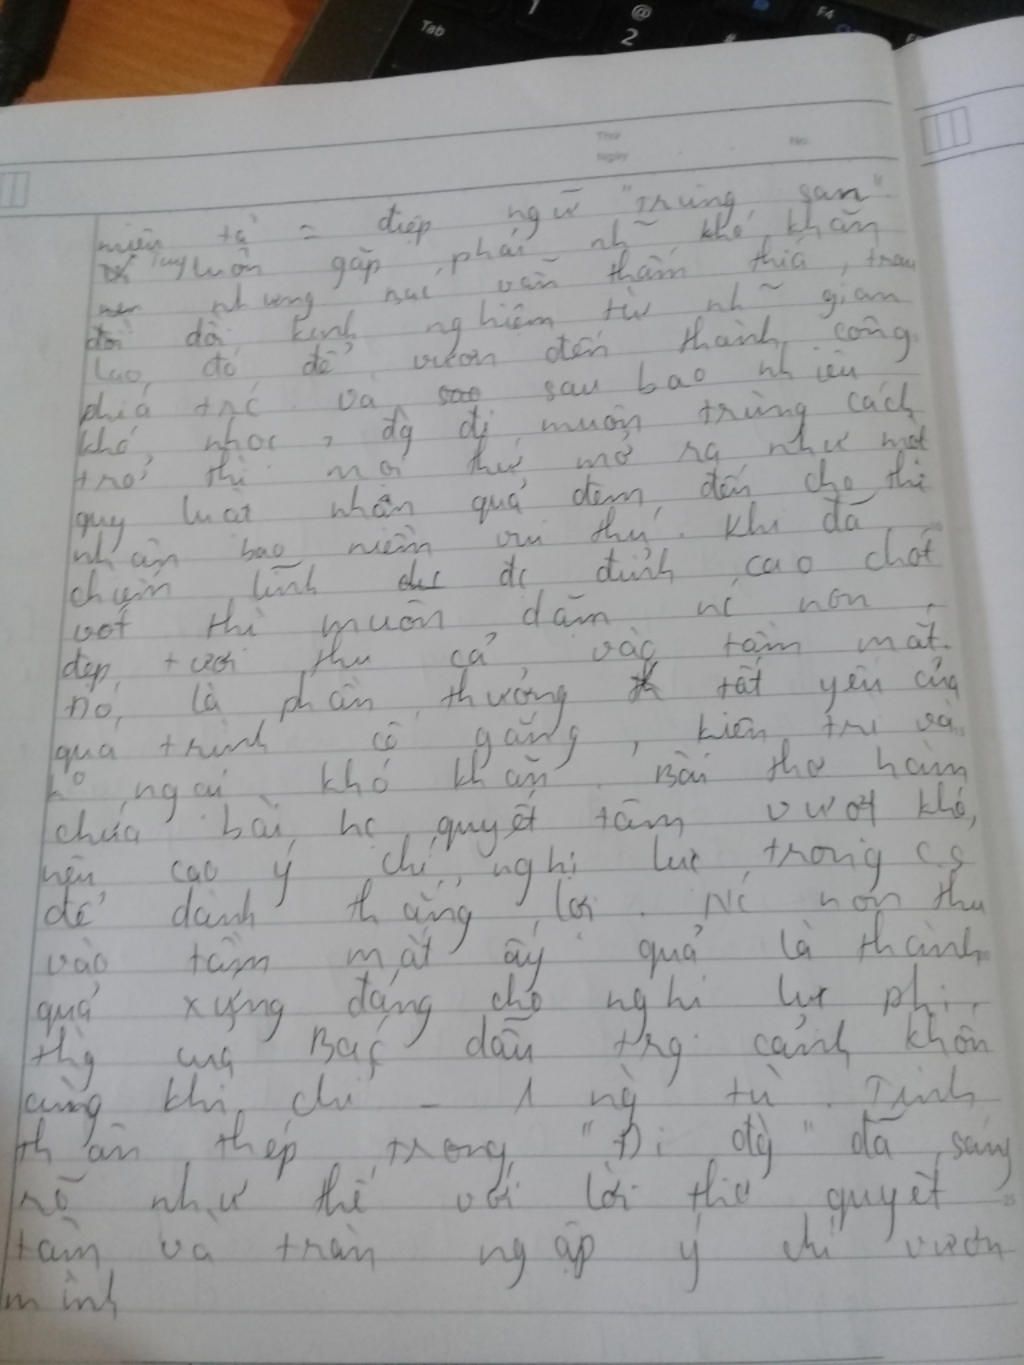 Tab
1
@
2
#
F4
Thứ
Ngày
No.
miêu tả = điệp ngữ "Trùng san"
Tuy luôn gặp phải nh~ khó khăn
nhưng Bác vẫn thấm thía, trau
dồi kinh nghiệm từ nh~ gian
lao, đó để vươn đến thành công
phiá trc và sau bao nhiêu
khó nhọc, đg đi muôn trùng cách
trở thì mọi thứ mở ra như một
quy luật nhân quả đem đến cho thi
nhân bao niềm vui thú. Khi đã
chiếm lĩnh đc đỉnh cao chót
vót thì muôn dặm nc non
đẹp tươi thu cả vào tầm mắt.
Đó là phần thưởng tất yếu của
quá trình cố gắng, kiên trì và
ko ngại khó khăn. Bài thơ hàm
chứa bài hc quyết tâm vượt khó,
nêu cao ý chí, nghị lực trong c.s
để dành thắng lợi. Nc non thu
vào tầm mắt ấy quả là thành
quả xứng đáng cho nghị lực phi
thg của Bác dẫu trg cảnh khốn
cùng khi chỉ – 1 ng tù. Tinh
thần thép trong "Đi đg" đã sáng
rõ như thế với lời thơ quyết
tâm và tràn ngập ý chí vươn
mình